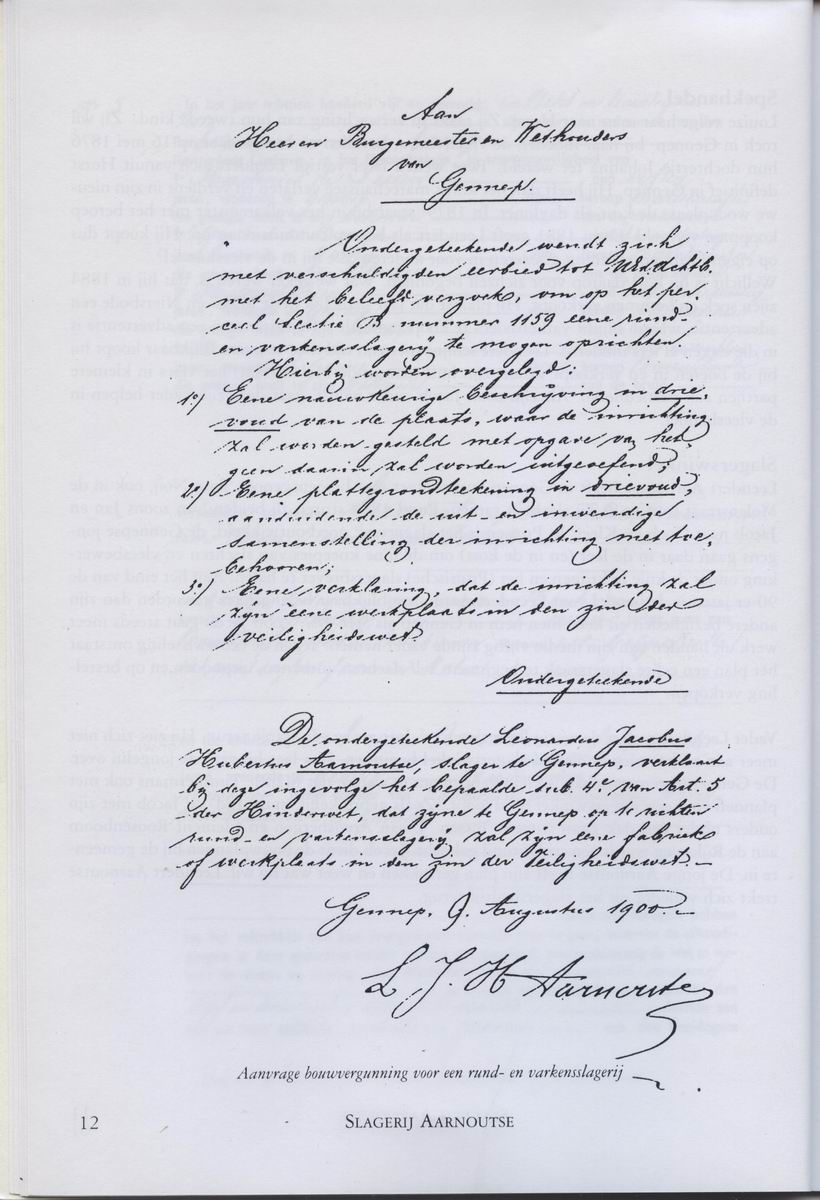 Aan
Heeren Burgemeester en Wethouders
van
Gennep.
Ondergeteekende wendt zich
met verschuldigden eerbied tot UEdAchtb.
met het beleefd verzoek, om op het per-
ceel Sectie B nummer 1159 eene rund-
en varkensslagerij te mogen oprichten.
Hierbij worden overgelegd:
1o) Eene nauwkeurige beschrijving in drie-
voud van de plaats, waar de inrichting
zal worden gesteld met opgave van het
geen daarin zal worden uitgeoefend;
2o) Eene plattegrondteekening in drievoud,
aanduidende de uit- en inwendige
samenstelling der inrichting met toe-
behooren;
3o) Eene verklaring, dat de inrichting zal
zijn eene werkplaats in den zin der
veiligheidswet.
Ondergeteekende
De ondergeteekende Leonardus Jacobus
Hubertus Aarnoutse, slager te Gennep, verklaart
bij deze ingevolge het bepaalde sub. 4e van Art. 5
der Hinderwet, dat zijne te Gennep op te richten
rund- en varkensslagerij zal zijn eene fabriek
of werkplaats in den zin der Veiligheidswet. -
Gennep, 9. Augustus 1900. -
L J. H Aarnoutse
Aanvrage bouwvergunning voor een rund- en varkensslagerij
12
SLAGERIJ AARNOUTSE